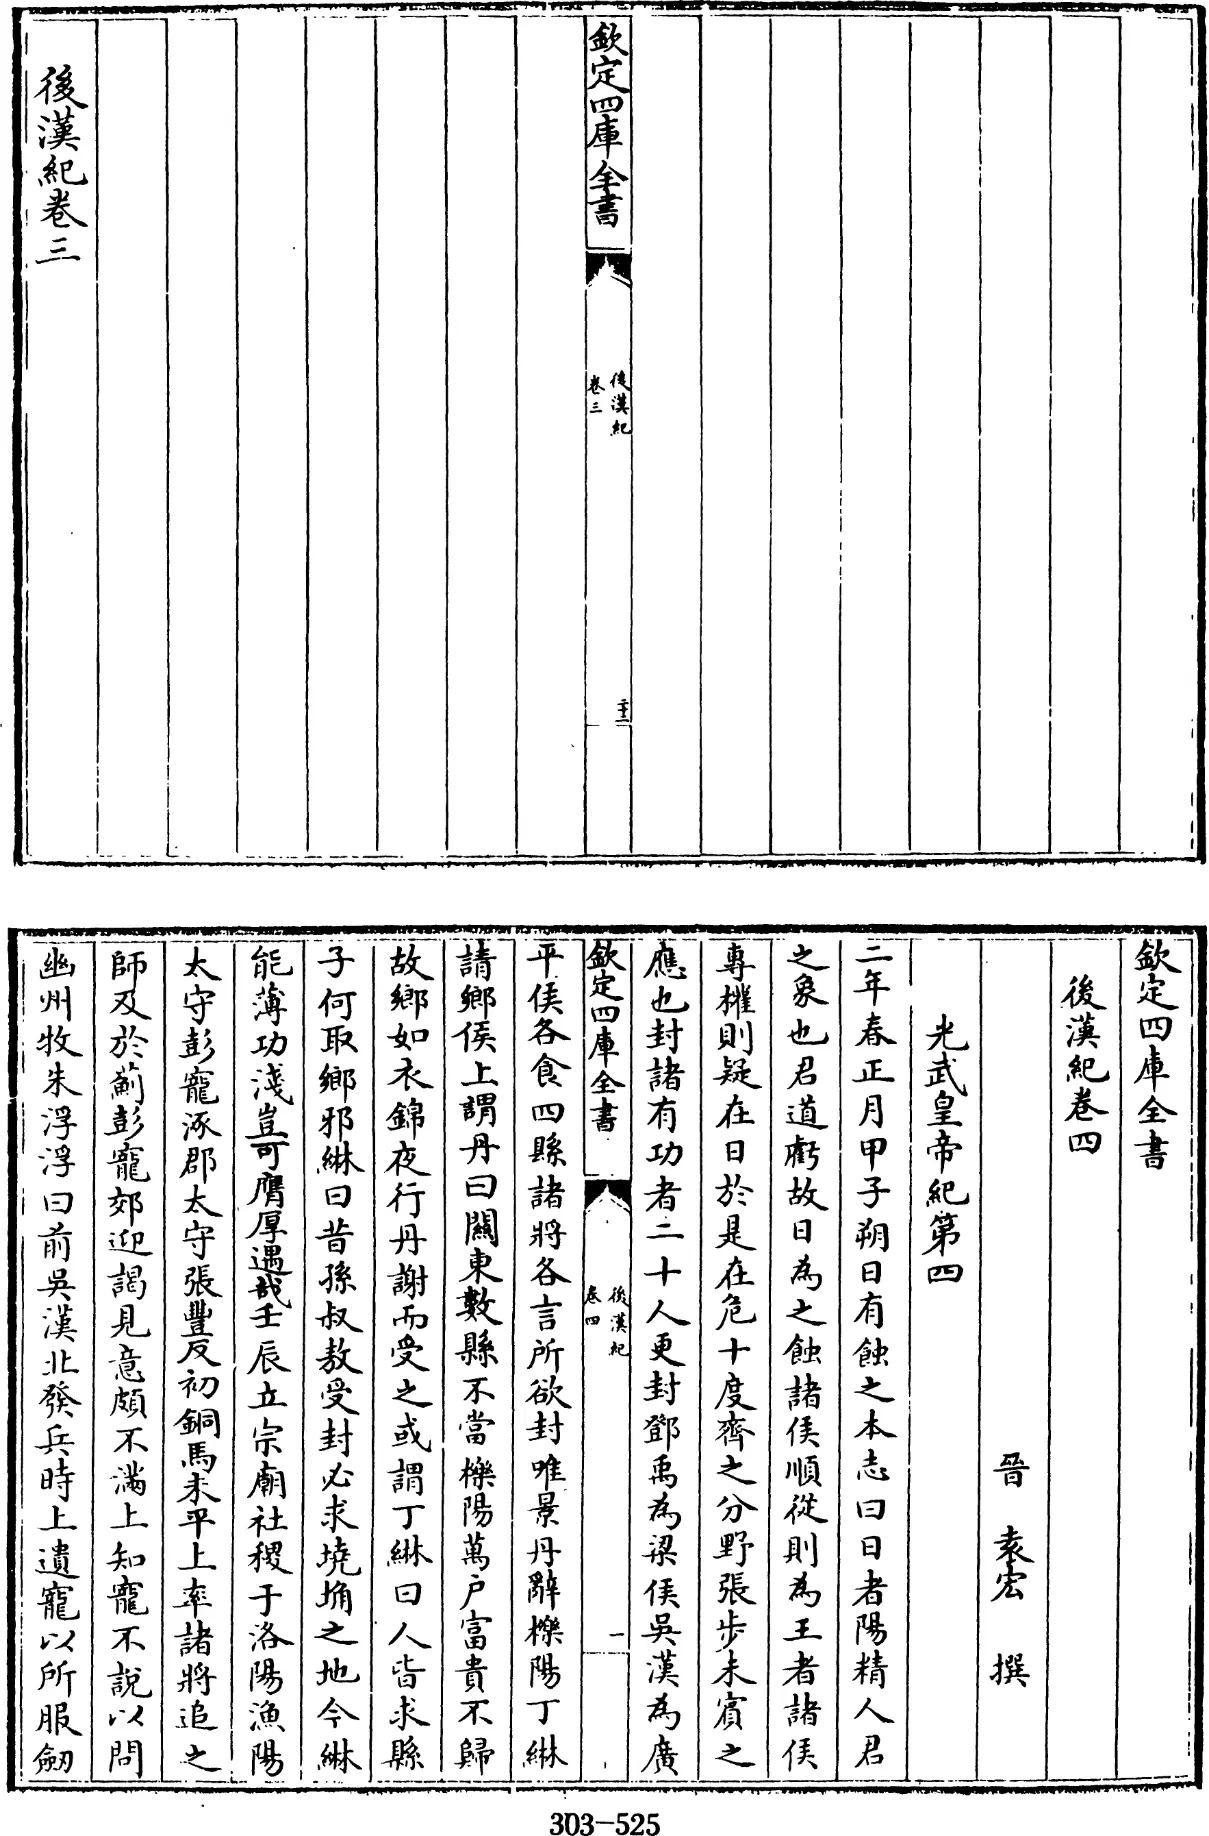 欽定四庫全書
後漢紀
卷三
二十三
後漢紀卷三
欽定四庫全書
後漢紀卷四
晉 袁宏 撰
光武皇帝紀第四
二年春正月甲子朔日有蝕之本志曰日者陽精人君
之象也君道虧故日為之蝕諸侯順從則為王者諸侯
專權則疑在日於是在危十度齊之分野張步未賓之
應也封諸有功者二十人更封鄧禹為梁侯吳漢為廣
欽定四庫全書
後漢紀
卷四
一
平侯各食四縣諸將各言所欲封唯景丹辭櫟陽丁綝
請鄉侯上謂丹曰關東數縣不當櫟陽萬戶富貴不歸
故鄉如衣錦夜行丹謝而受之或謂丁綝曰人皆求縣
子何取鄉邪綝曰昔孫叔敖受封必求墝埆之地今綝
能薄功淺豈可膺厚遇哉壬辰立宗廟社稷于洛陽漁陽
太守彭寵涿郡太守張豐反初銅馬未平上率諸將追之
師及於薊彭寵郊迎謁見意頗不滿上知寵不說以問
幽州牧朱浮浮曰前吳漢北發兵時上遺寵以所服劒
303-525